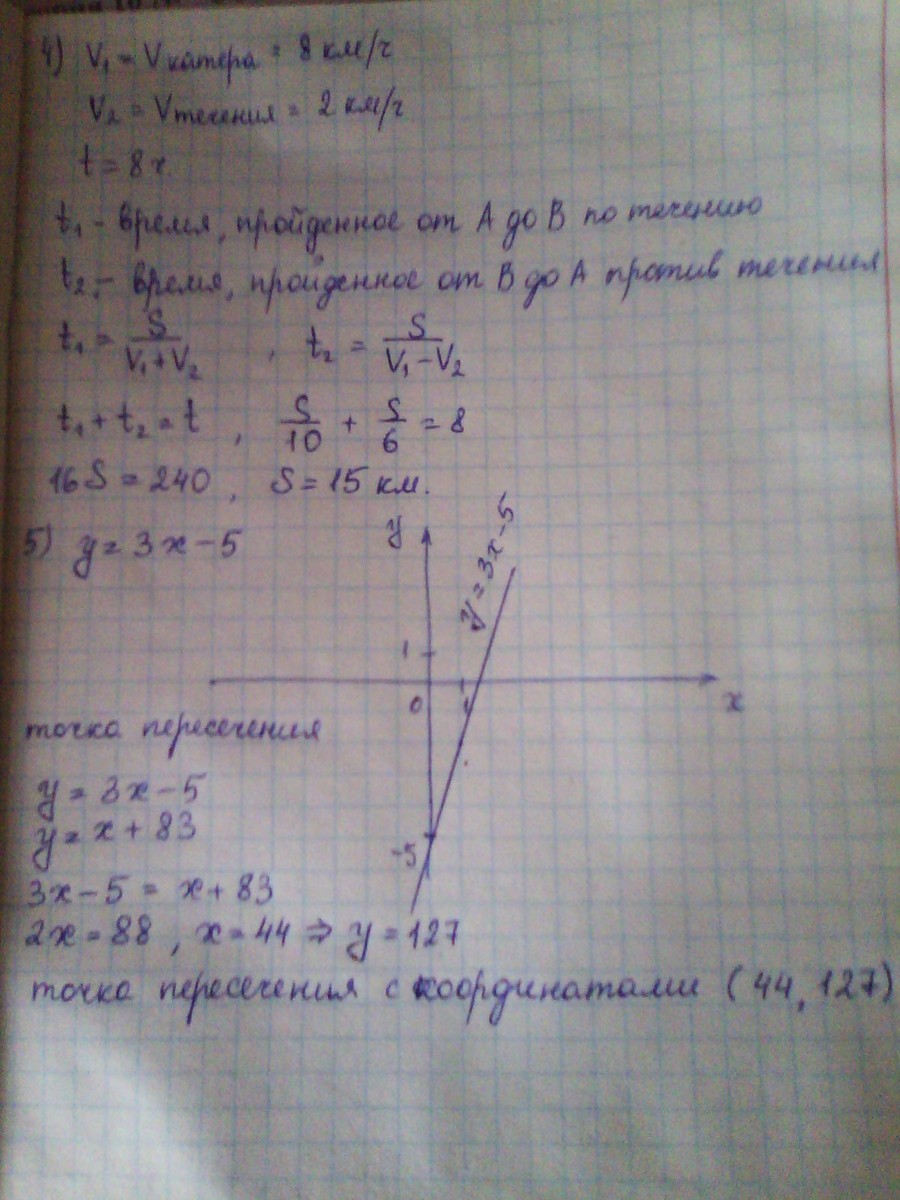 4) V₁ = Vкатера = 8 км/ч
V₂ = Vтечения = 2 км/ч
t = 8 ч.
t₁ - время, пройденное от А до В по течению
t₂ - время, пройденное от В до А против течения
t₁ = S/(V₁+V₂) , t₂ = S/(V₁-V₂)
t₁ + t₂ = t , S/10 + S/6 = 8
16S = 240 , S = 15 км.
5) y = 3x - 5
y
y = 3x - 5
1
0
1
x
-5
точка пересечения
y = 3x - 5
y = x + 83
3x - 5 = x + 83
2x = 88 , x = 44 ⇒ y = 127
точка пересечения с координатами (44, 127)